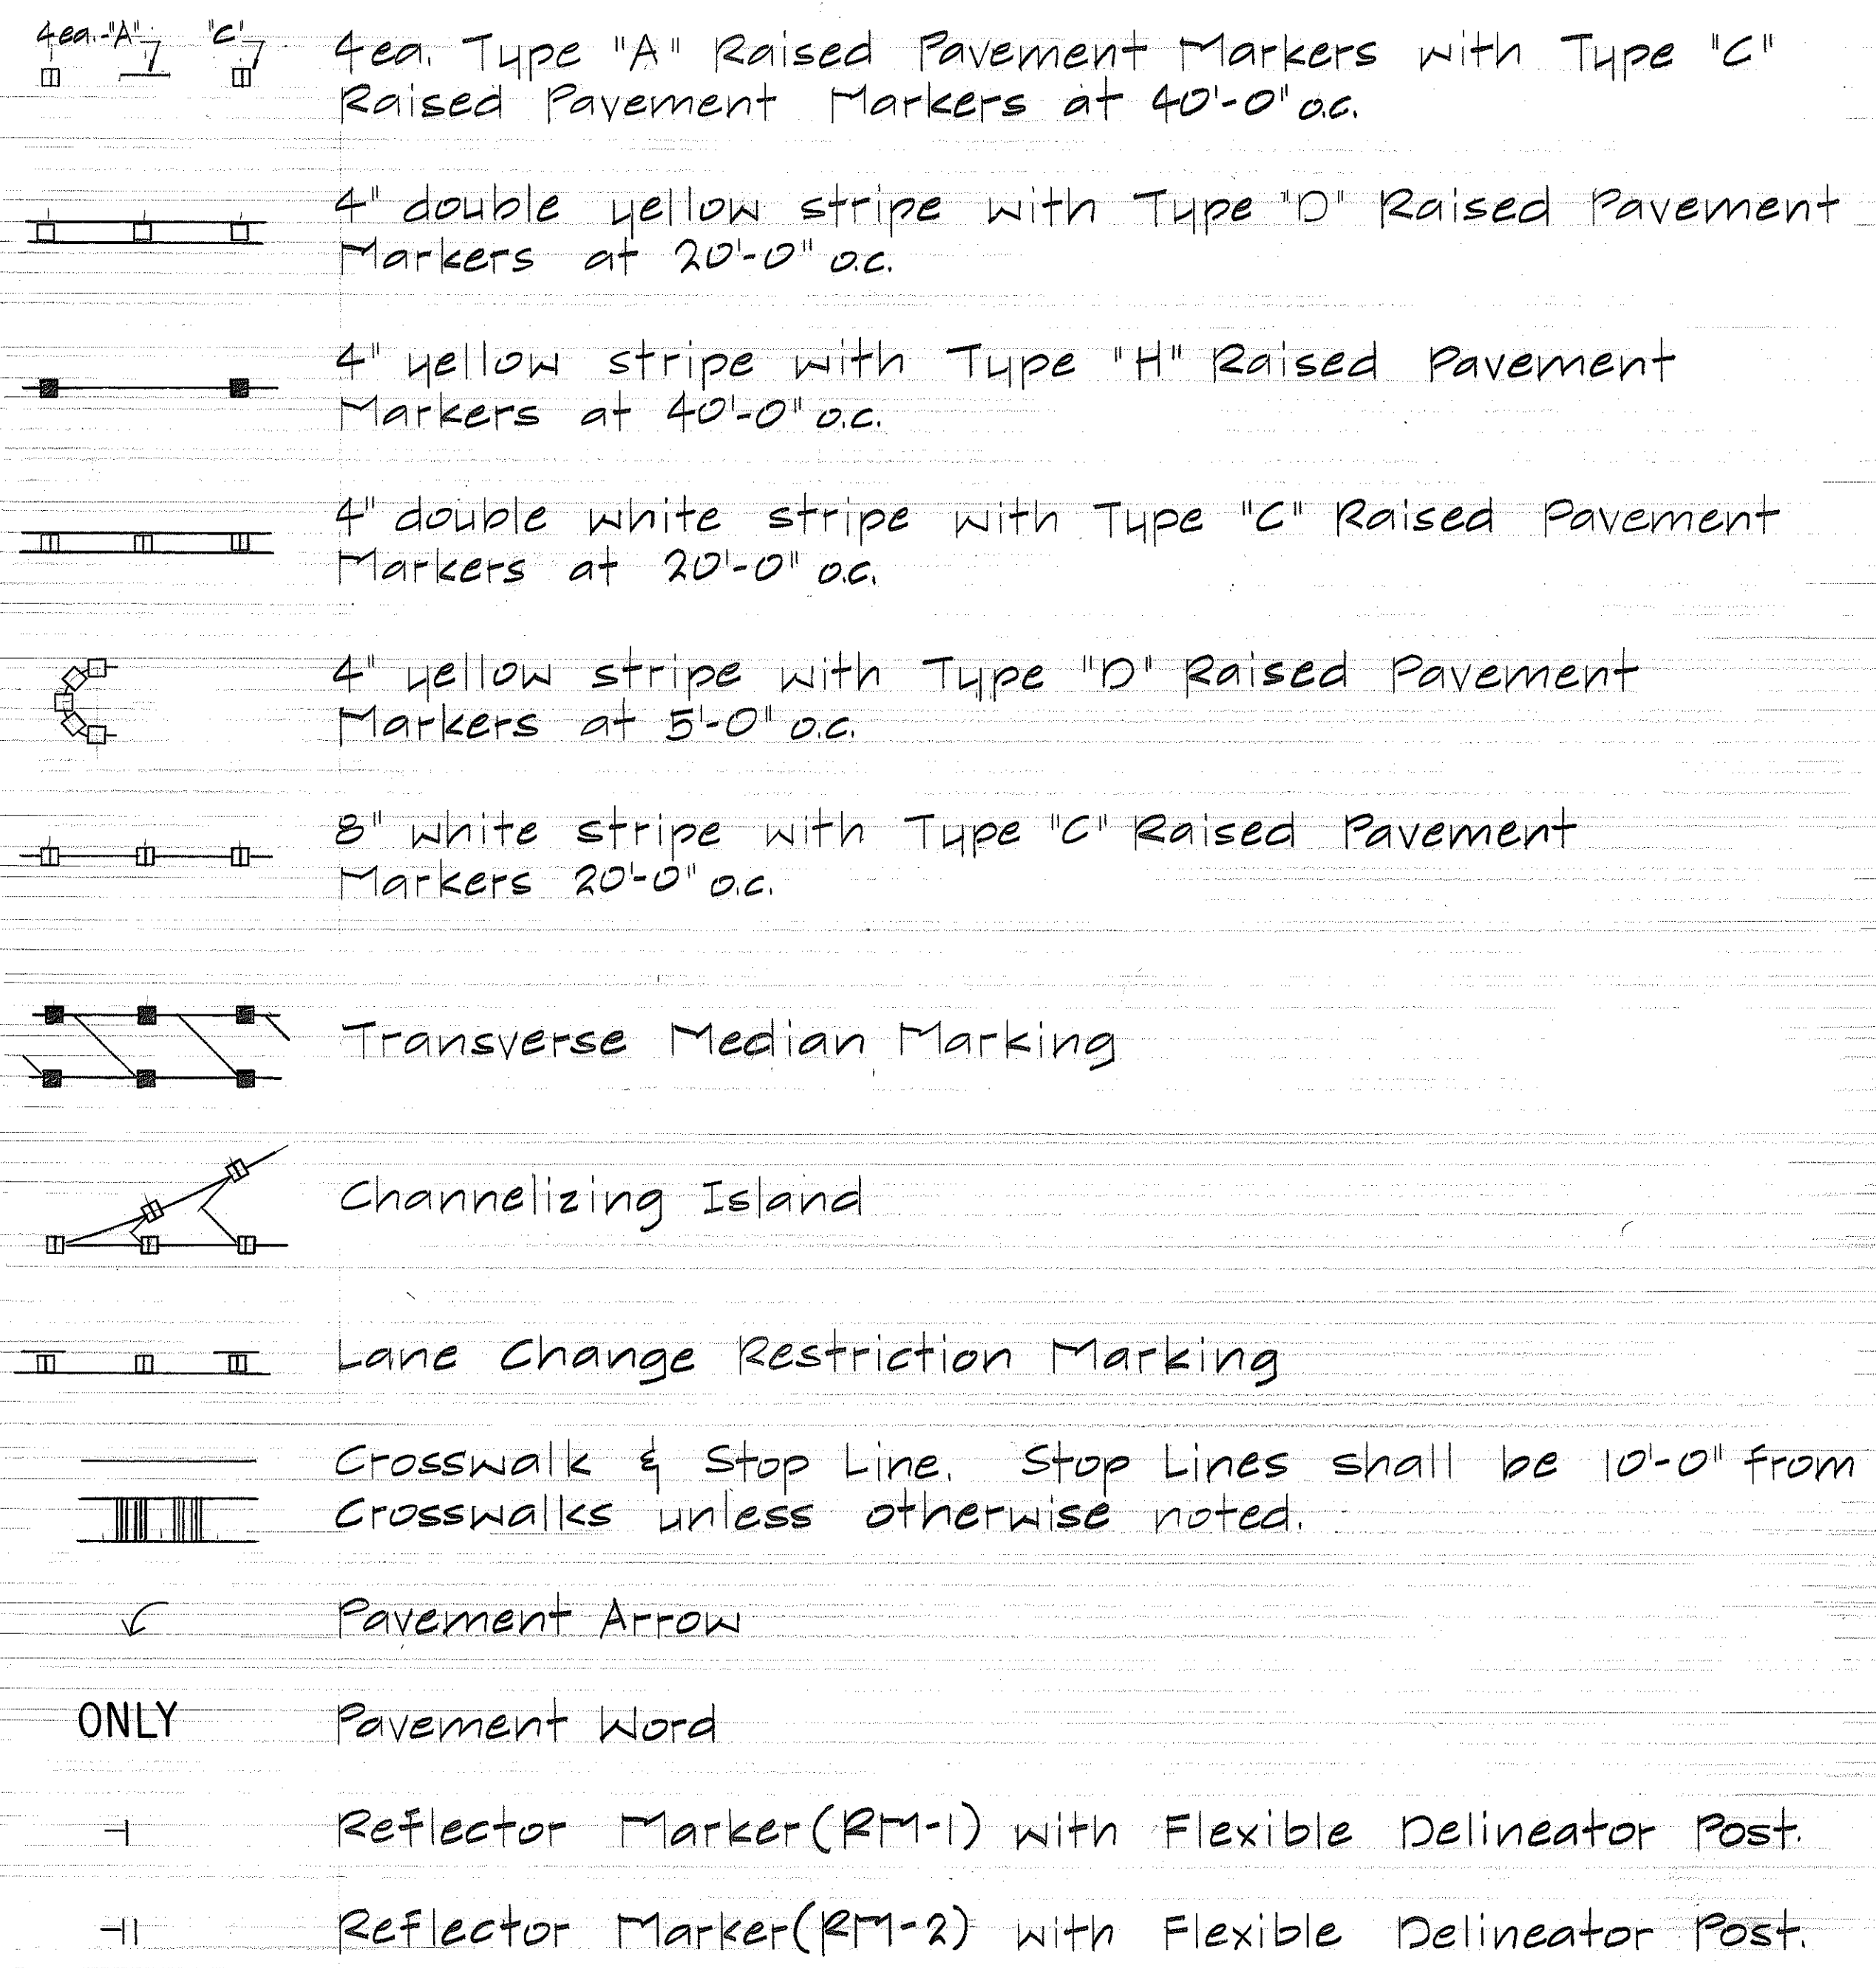 4ea.-"A" "C"
4ea. Type "A" Raised Pavement Markers with Type "C"
Raised Pavement Markers at 40'-0" o.c.
4" double yellow stripe with Type "D" Raised Pavement
Markers at 20'-0" o.c.
4" yellow stripe with Type "H" Raised Pavement
Markers at 40'-0" o.c.
4" double white stripe with Type "C" Raised Pavement
Markers at 20'-0" o.c.
4" yellow stripe with Type "D" Raised Pavement
Markers at 5'-0" o.c.
8" white stripe with Type "C" Raised Pavement
Markers 20'-0" o.c.
Transverse Median Marking
Channelizing Island
Lane Change Restriction Marking
Crosswalk & Stop Line. Stop Lines shall be 10'-0" from
Crosswalks unless otherwise noted.
Pavement Arrow
ONLY Pavement Word
Reflector Marker (RM-1) with Flexible Delineator Post.
Reflector Marker (RM-2) with Flexible Delineator Post.